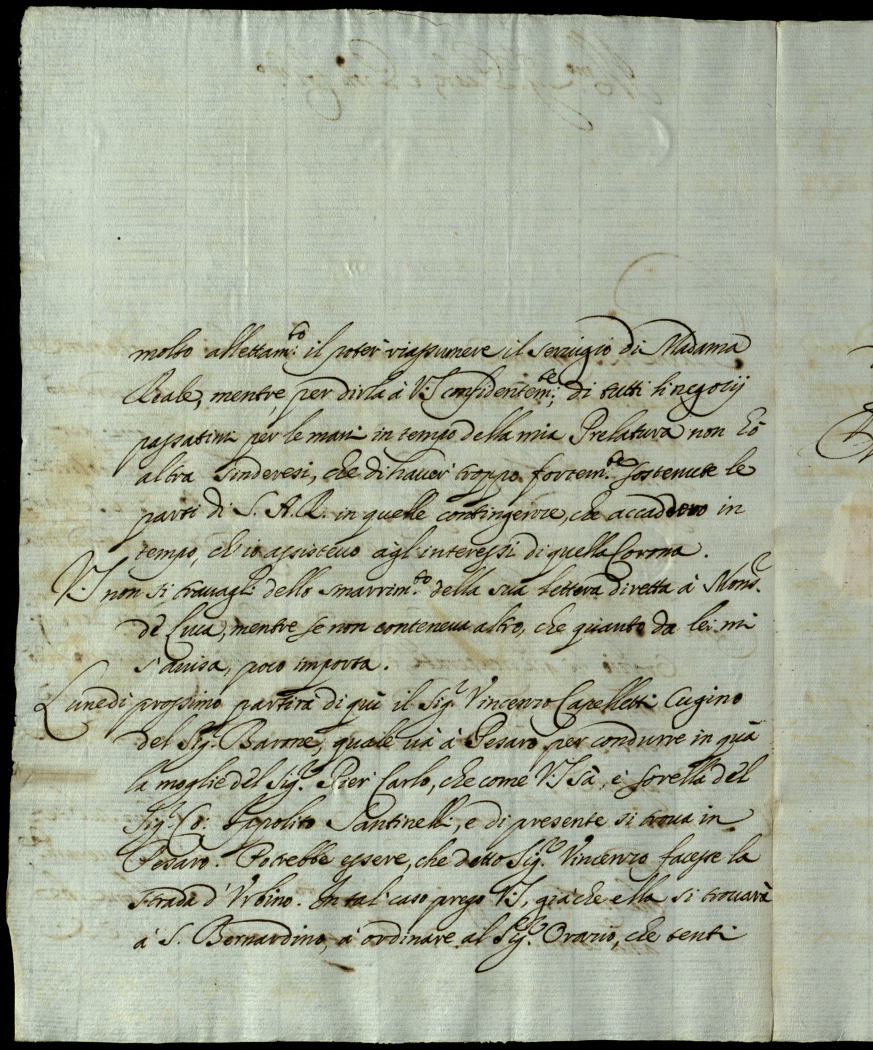 molto allettam.to il poter riassumere il Servigio di Madama
Reale, mentre per dirla à V.S. confidentem.te, di tutti li negotij
passatimi per le mani in tempo della mia Prelatura non hò
altra Sinderesi, che di haver troppo fortem.te Sostenute le
parti di S. A. R. in quelle contingenze, che accaddero in
tempo, ch'io assistevo agl'interessi di quella Corona.
V.S. non si travagli dello smarrim.to della sua lettera diretta à Mons.r
de Luca, mentre se non conteneva altro, che quanto da lei mi
s'avisa, poco importa.
Lunedi prossimo partirà di quì il Sig.r Vincenzo Capelletti Cugino
del Sig.r Barone, quale và à Pesaro per condurre in quà
la moglie del Sig.r Pier Carlo, che come V.S. sà, è sorella del
Sig.r Co: Ippolito Santinelli, e di presente si trova in
Pesaro. Potrebbe essere, che detto Sig.r Vincenzo facesse la
strada d'Urbino. In tal caso prego V.S., giache ella si trovarà
à S. Bernardino, à ordinare al Sig.r Orazio, che tenti